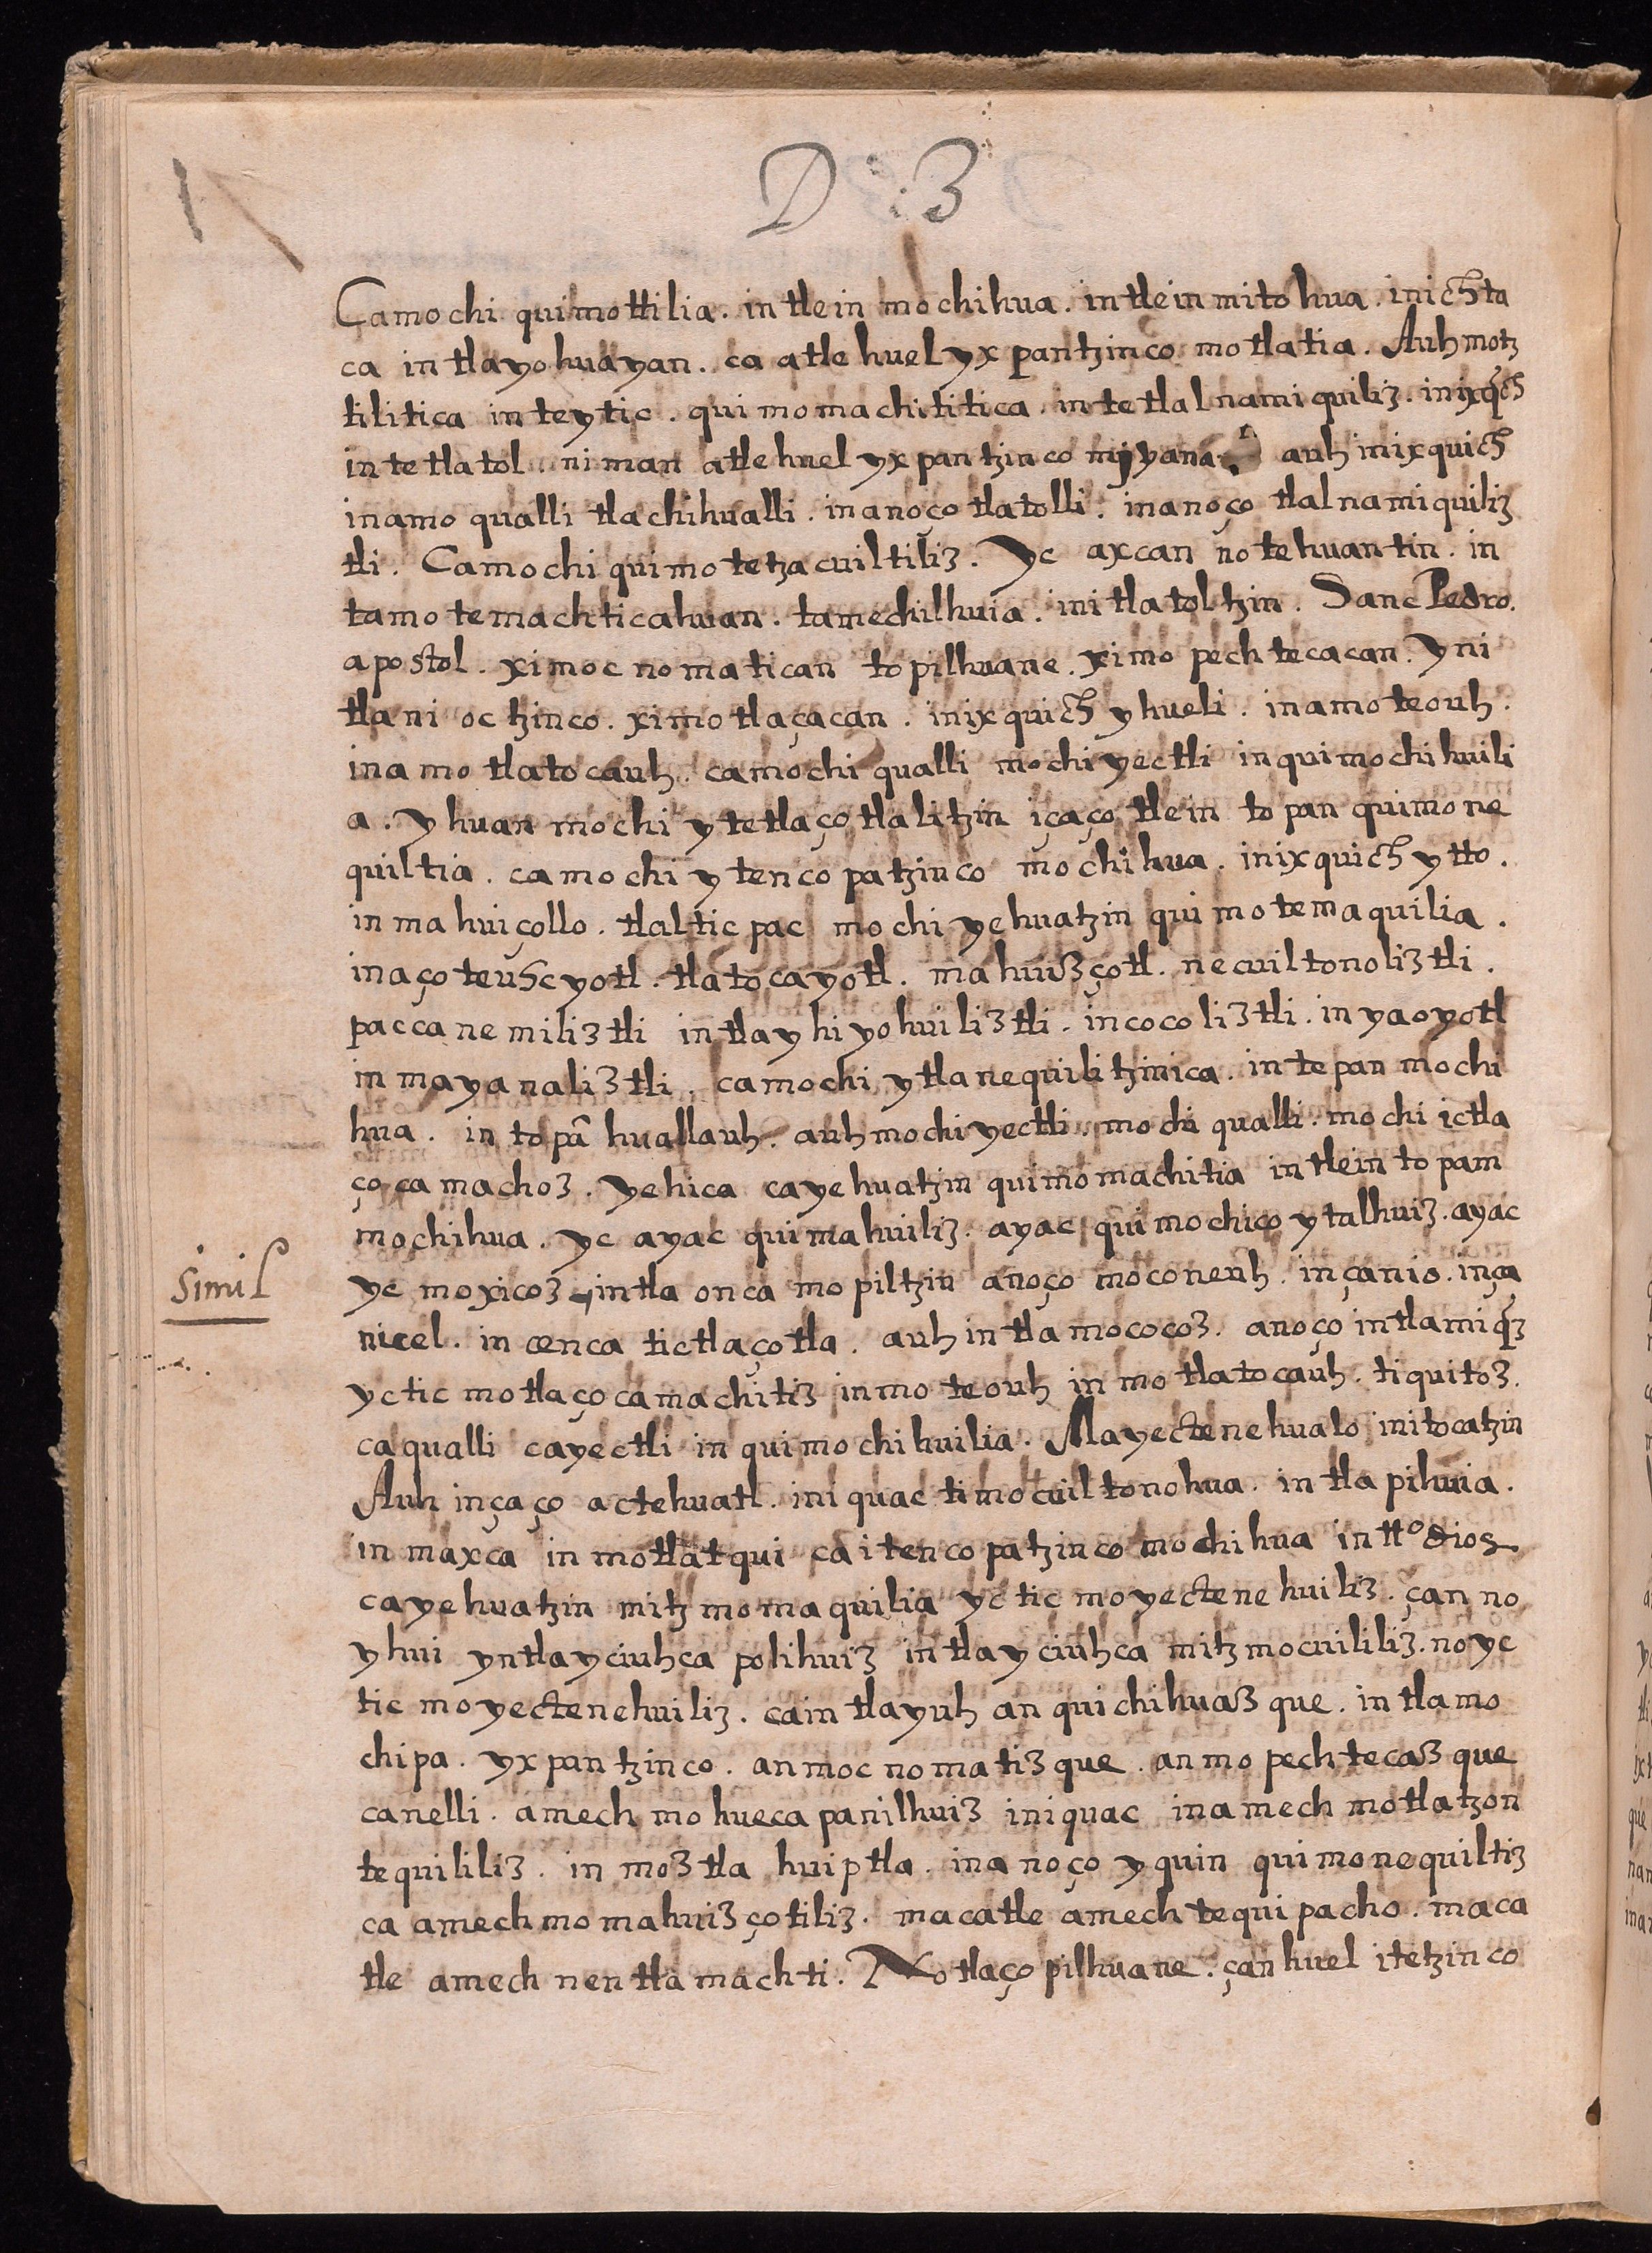 D : 3
Camochi quimottilia. in tlein mochihua. in tlein mitohua. inichta
ca in tlayohuayan. ca atle huel yxpantzinco motlatia. Auh motz
tilitica inteytic. quimomachititica. in tetlalnamiquiliz. inixqch
in tetlatol. niman atle huel yxpantzinco miyana. auh inixquich
inamo qualli tlachihualli. inanoço tlatolli. inanoço tlalnamiquiliz
tli. Camochi quimotetzacuiltiliz. Yc axcan notehuantin. in
tamotemachticahuan. tamechilhuia. initlatoltzin. Sanc Pedro.
apostol. ximocnomatican topilhuane. ximopechtecacan. Yni
tlani octzinco. ximotlaçacan. inixquich yhueli. inamoteouh.
inamotlatocauh. camochi qualli mochiyectli inquimochihuili
a. Yhuan mochi ytetlaçotlalitzin içaço tlein topan quimone
quiltia. camochi ytencopatzinco mochihua. inixquich ytto.
in mahuiçollo. tlalticpac mochi yehuatzin quimotemaquilia.
inaço teuhcyotl. tlatocayotl. mahuizçotl. necuiltonoliztli.
paccanemiliztli in tlayhiyohuiliztli. incocoliztli. inyaoyotl
in mayanaliztli. camochi ytlanequilitzinica. in tepan mochi
hua. in topã huallauh. auh mochiyectli. mochi qualli. mochi ictla
çocamachoz. Yehica cayehuatzin quimomachitia in tlein topam
mochihua. yc ayac quimahuiliz. ayac quimochicoytalhuiz. ayac
Simil
yc moxicoz, intla onca mopiltzin anoço moconeuh. inçanio. inça
nicel. in cenca tictlaçotla. auh intla mococoz. anoço intlamiqz
yctic motlaçocamachitiz inmoteouh inmotlatocauh. tiquitoz.
caqualli cayectli in quimochihuilia. Mayectenehualo initocatzin
Auh inçaço actehuatl. iniquac timocuiltonohua. in tlapihuia.
in maxca in motlatqui ca itencopatzinco mochihua in tto dios
cayehuatzin mitzmomaquilia yctic moyectenehuiliz. çan no
yhui yntlayciuhca polihuiz intlayciuhca mitzmocuililiz. noyc
tic moyectenehuiliz. caintlayuh anquichihuazque. intlamo
chipa. yxpantzinco. anmocnomatizque. anmopechtecazque
canelli. amechmohuecapanilhuiz iniquac inamechmotlatzon
tequililiz. in moztla huiptla. inanoço yquin quimonequiltiz
ca amechmomahuizçotiliz. macatle amechtequipacho. maca
tle amechnentlamachti. Notlaçopilhuane. çanhuel itetzinco